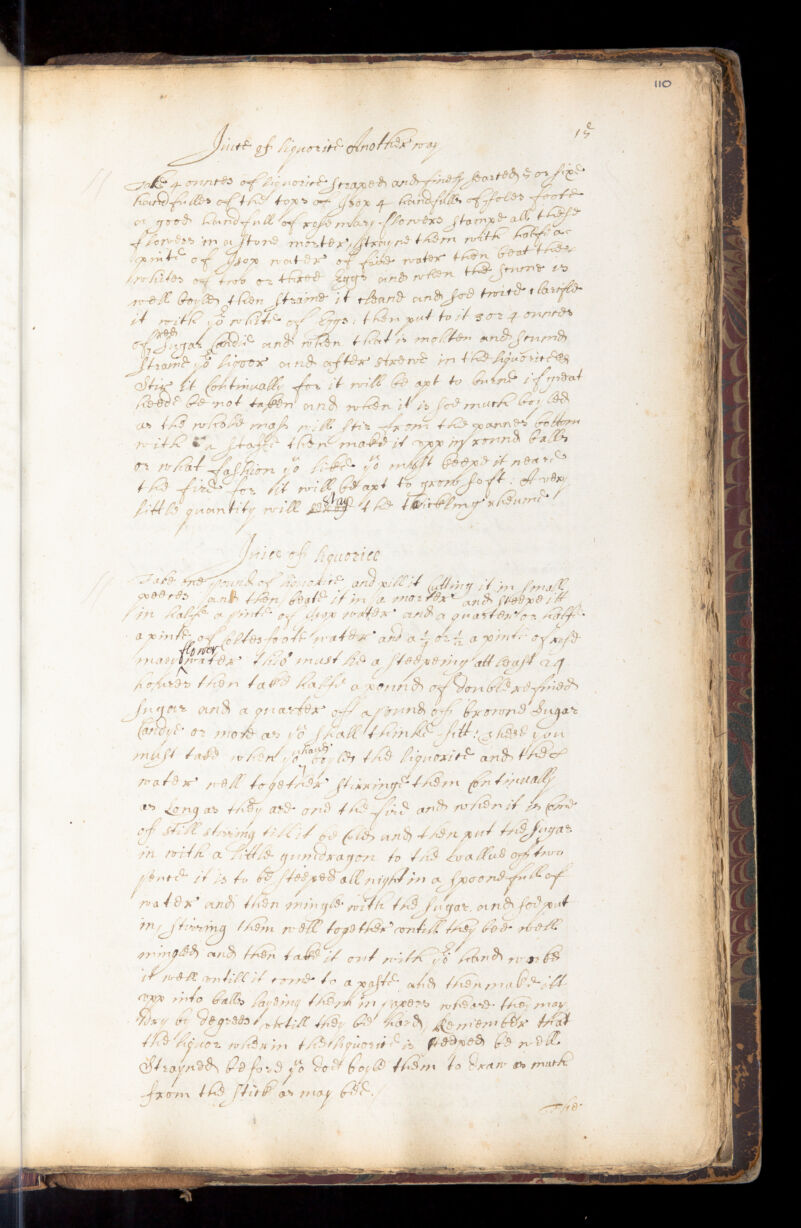 110
15
Juice of liquorice Another way
Take 4 ounces of liquorice scraped and finely searced 5 or sixe
handfulles of the tops of Isop 4 handfulls of foles foote
a good handfull of rosemary flowers stampe all these
flowers in a stone morter, strayne them with halfe a
pinte of Isop water or fine water then beat the
whites of two or three Eggs and when the scume is
well boyled then straine it cleane and soe twice clarifie
it with ye white of Eggs: then put to it 3 or 4 ounces
of red Sugar Candie and when that is molten and scumd
straine ye liquor and after strewe in the liquorice
Stir it Continually for it will be apt to burne if great
heede be not taken and when it is soe much boyled
as the whole mass will stir from the pannes bottom
with a staffe then make it upp in round balls
or what fashion yo like yo must keepe it neare
the fire for itt will be apt to grow soft: A very
little quantity will stay the tickling rheume
Juice of liquorice
Take one pound of liquorice and pill it Cutting it in small
peeces and then beate it in a morter and steepe itt
in halfe a pinte of Isop water and a quarter or halfe
a pinte of Coltesfoote water and a 1/4 or 1/2 a pinte of rose
mary flower water this must be a steepeing att least 24
houres then take halfe a pound of double refined
Sugar and a quarter of a pound of browne Sugar
Candye or more as yo shall thinke fitt: heere you
must take when yo have boyled the liquorice and the
water well together stirringe them Continually
as Long as they are one the fire and when it is Come
of still stiring till it be Cold and then put the Sugar
in with a little gumdragon to the vallue of two
pence it is to be steeped all night in a spoonefull of
water and then mingle with the Sugar and soe put
in, stirring them well together untill they bee well
mingled and then take it out with yo hand worke
it well untill it come to a paste and then make itt
upp into balls layeing them in papers wheare they may
dry by degrees untill they be hard, Remember that
the liquor wherin the liquorice is steeped be well
Strayned before yo doe boyle them to draw as much
from the stick as may bee.
The